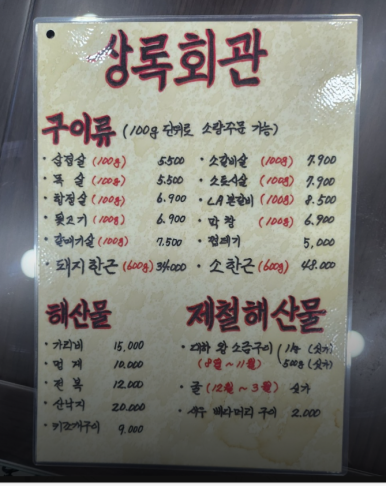 상록회관
구이류 (100g 단위로 소량주문 가능)
· 삼겹살 (100g) 5.500 · 소갈비살 (100g) 7.900
· 목 살 (100g) 5.500 · 소토시살 (100g) 7.900
· 항정살 (100g) 6.900 · LA본갈비 (100g) 8.500
· 뒷고기 (100g) 6.900 · 막 창 (100g) 6.900
· 갈매기살 (100g) 7.500 · 껍데기 5,000
· 돼지한근 (600g) 34.000 · 소한근 (600g) 48.000
해산물 제철해산물
· 가리비 15,000 · 대하 왕 소금구이 1kg (싯가)
· 멍 게 10,000 (8월 ~ 11월) 500g (싯가)
· 전 복 12,000 · 굴 (12월 ~ 3월) 싯가
· 산낙지 20,000 · 새우 버터머리 구이 2.000
· 키조개구이 9,000